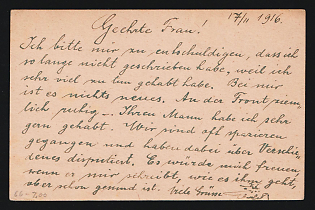 17/11 1916.
Geehrte Frau!
Ich bitte mir zu entschuldigen, dass ich
so lange nicht geschrieben habe, weil ich
sehr viel zu tun gehabt habe. Bei mir
ist es nichts neues. An der Front ziem
lich ruhig. Ihren Mann habe ich sehr
gern gehabt. Wir sind oft spazieren
gegangen und haben dabei über Verschie
denes disputiert. Es würde mich freuen,
wenn er mir schreibt, wie es ihm geht,
ob er schon gesund ist. Viele Grüsse